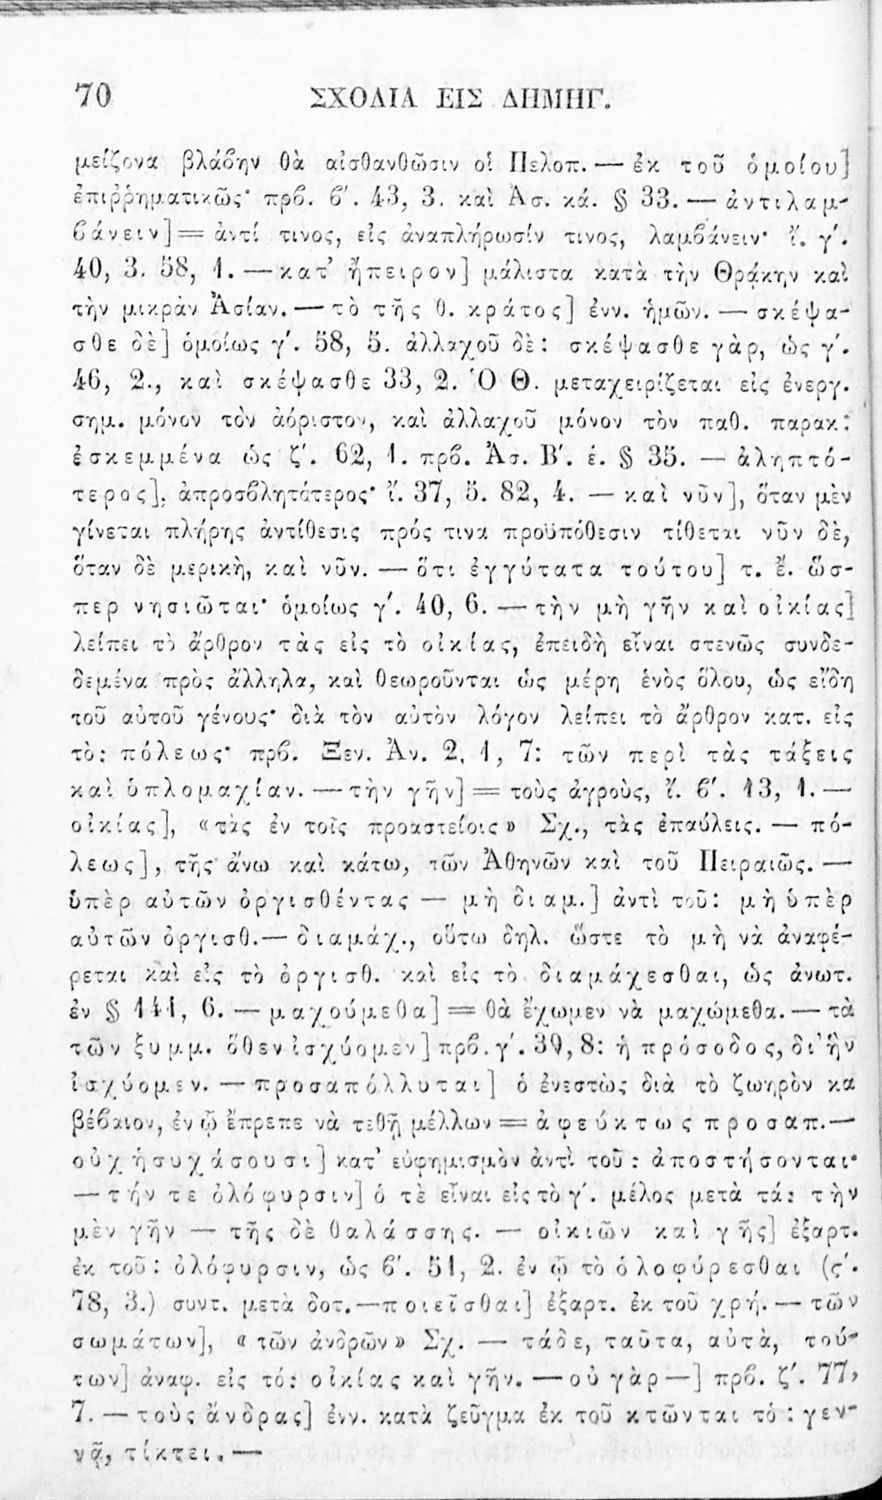 70 ΣΧΟΛΙΑ ΕΙΣ ΔΗΜΗΓ.
μείζονα βλάβην θὰ αἰσθανθῶσιν οἱ Πελοπ. — ἐκ τοῦ ὁμοίου]
ἐπιῤῥηματικῶς· πρβ. β'. 43, 3. καὶ Ἀσ. κά. § 33. — ἀντιλαμ-
βάνειν] = ἀντί τινος, εἰς ἀναπλήρωσίν τινος, λαμβάνειν· ἴ. γ'.
40, 3. 58, 1. — κατ' ἤπειρον] μάλιστα κατὰ τὴν Θράκην καὶ
τὴν μικρὰν Ἀσίαν. — τὸ τῆς θ. κράτος] ἐνν. ἡμῶν. — σκέψα-
σθε δὲ] ὁμοίως γ'. 58, 5. ἀλλαχοῦ δὲ: σκέψασθε γὰρ, ὡς γ'.
46, 2., καὶ σκέψασθε 33, 2. Ὁ Θ. μεταχειρίζεται εἰς ἐνεργ.
σημ. μόνον τὸν ἀόριστον, καὶ ἀλλαχοῦ μόνον τὸν παθ. παρακ:
ἐσκεμμένα ὡς ζ'. 62, 1. πρβ. Ἀσ. Β'. έ. § 35. — ἀληπτό-
τερος], ἀπροσβλητότερος· ἴ. 37, 5. 82, 4. — καὶ νῦν], ὅταν μὲν
γίνεται πλήρης ἀντίθεσις πρός τινα προϋπόθεσιν τίθεται νῦν δὲ,
ὅταν δὲ μερικὴ, καὶ νῦν. — ὅτι ἐγγύτατα τούτου] τ. ἔ. ὥσ-
περ νησιῶται· ὁμοίως γ'. 40, 6. — τὴν μὴ γῆν καὶ οἰκίας]
λείπει τὸ ἄρθρον τὰς εἰς τὸ οἰκίας, ἐπειδὴ εἶναι στενῶς συνδε-
δεμένα πρὸς ἄλληλα, καὶ θεωροῦνται ὡς μέρη ἑνὸς ὅλου, ὡς εἴδη
τοῦ αὐτοῦ γένους· διὰ τὸν αὐτὸν λόγον λείπει τὸ ἄρθρον κατ. εἰς
τὸ: πόλεως· πρβ. Ξεν. Ἀν. 2, 1, 7: τῶν περὶ τὰς τάξεις
καὶ ὁπλομαχίαν. — τὴν γῆν] = τοὺς ἀγρούς, ἴ. β'. 13, 1. —
οἰκίας], «τὰς ἐν τοῖς προαστείοις» Σχ., τὰς ἐπαύλεις. — πό-
λεως], τῆς ἄνω καὶ κάτω, τῶν Ἀθηνῶν καὶ τοῦ Πειραιῶς. —
ὑπὲρ αὐτῶν ὀργισθέντας — μὴ διαμ.] ἀντὶ τοῦ: μὴ ὑπὲρ
αὐτῶν ὀργισθ. — διαμάχ., οὕτω δηλ. ὥστε τὸ μὴ νὰ ἀναφέ-
ρεται καὶ εἰς τὸ ὀργισθ. καὶ εἰς τὸ διαμάχεσθαι, ὡς ἀνωτ.
ἐν § 141, 6. — μαχούμεθα] = θὰ ἔχωμεν νὰ μαχώμεθα. — τὰ
τῶν ξυμμ. ὅθεν ἰσχύομεν] πρβ. γ'. 39, 8: ἡ πρόσοδος, δι' ἣν
ἰσχύομεν. — προσαπόλλυται] ὁ ἐνεστὼς διὰ τὸ ζωηρὸν κα
βέβαιον, ἐν ᾧ ἔπρεπε νὰ τεθῇ μέλλων = ἀφεύκτως προσαπ.—
οὐχ ἡσυχάσουσι] κατ' εὐφημισμὸν ἀντὶ τοῦ: ἀποστήσονται·
— τήν τε ὀλόφυρσιν] ὁ τὲ εἶναι εἰς τὸ γ'. μέλος μετὰ τά: τὴν
μὲν γῆν — τῆς δὲ θαλάσσης. — οἰκιῶν καὶ γῆς] ἐξαρτ.
ἐκ τοῦ: ὀλόφυρσιν, ὡς β'. 51, 2. ἐν ᾧ τὸ ὀλοφύρεσθαι (ς'.
78, 3.) συντ. μετὰ δοτ.—ποιεῖσθαι] ἐξαρτ. ἐκ τοῦ χρή. — τῶν
σωμάτων], «τῶν ἀνδρῶν» Σχ. — τάδε, ταῦτα, αὐτὰ, τού-
των] ἀναφ. εἰς τό: οἰκίας καὶ γῆν. — οὐ γὰρ —] πρβ. ζ'. 77,
7. — τοὺς ἄνδρας] ἐνν. κατὰ ζεῦγμα ἐκ τοῦ κτῶνται τό: γεν-
νᾷ, τίκτει. —